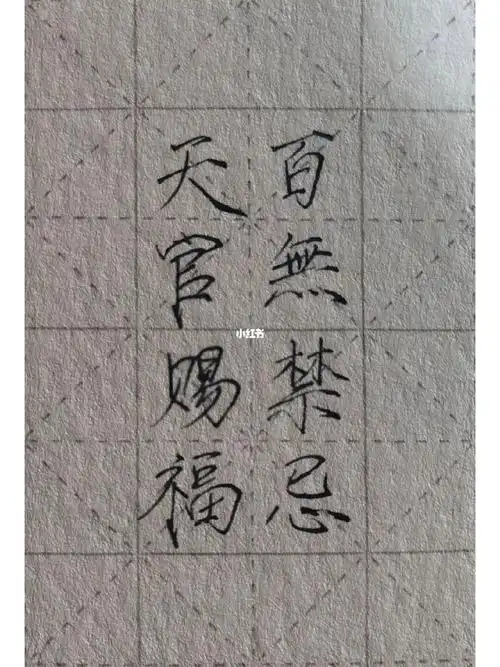 百無禁忌
天官赐福
小红书